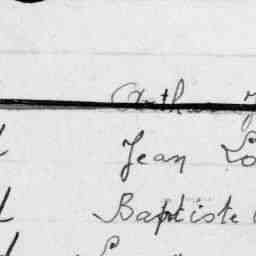 Arthur J
Jean Lo
Baptiste